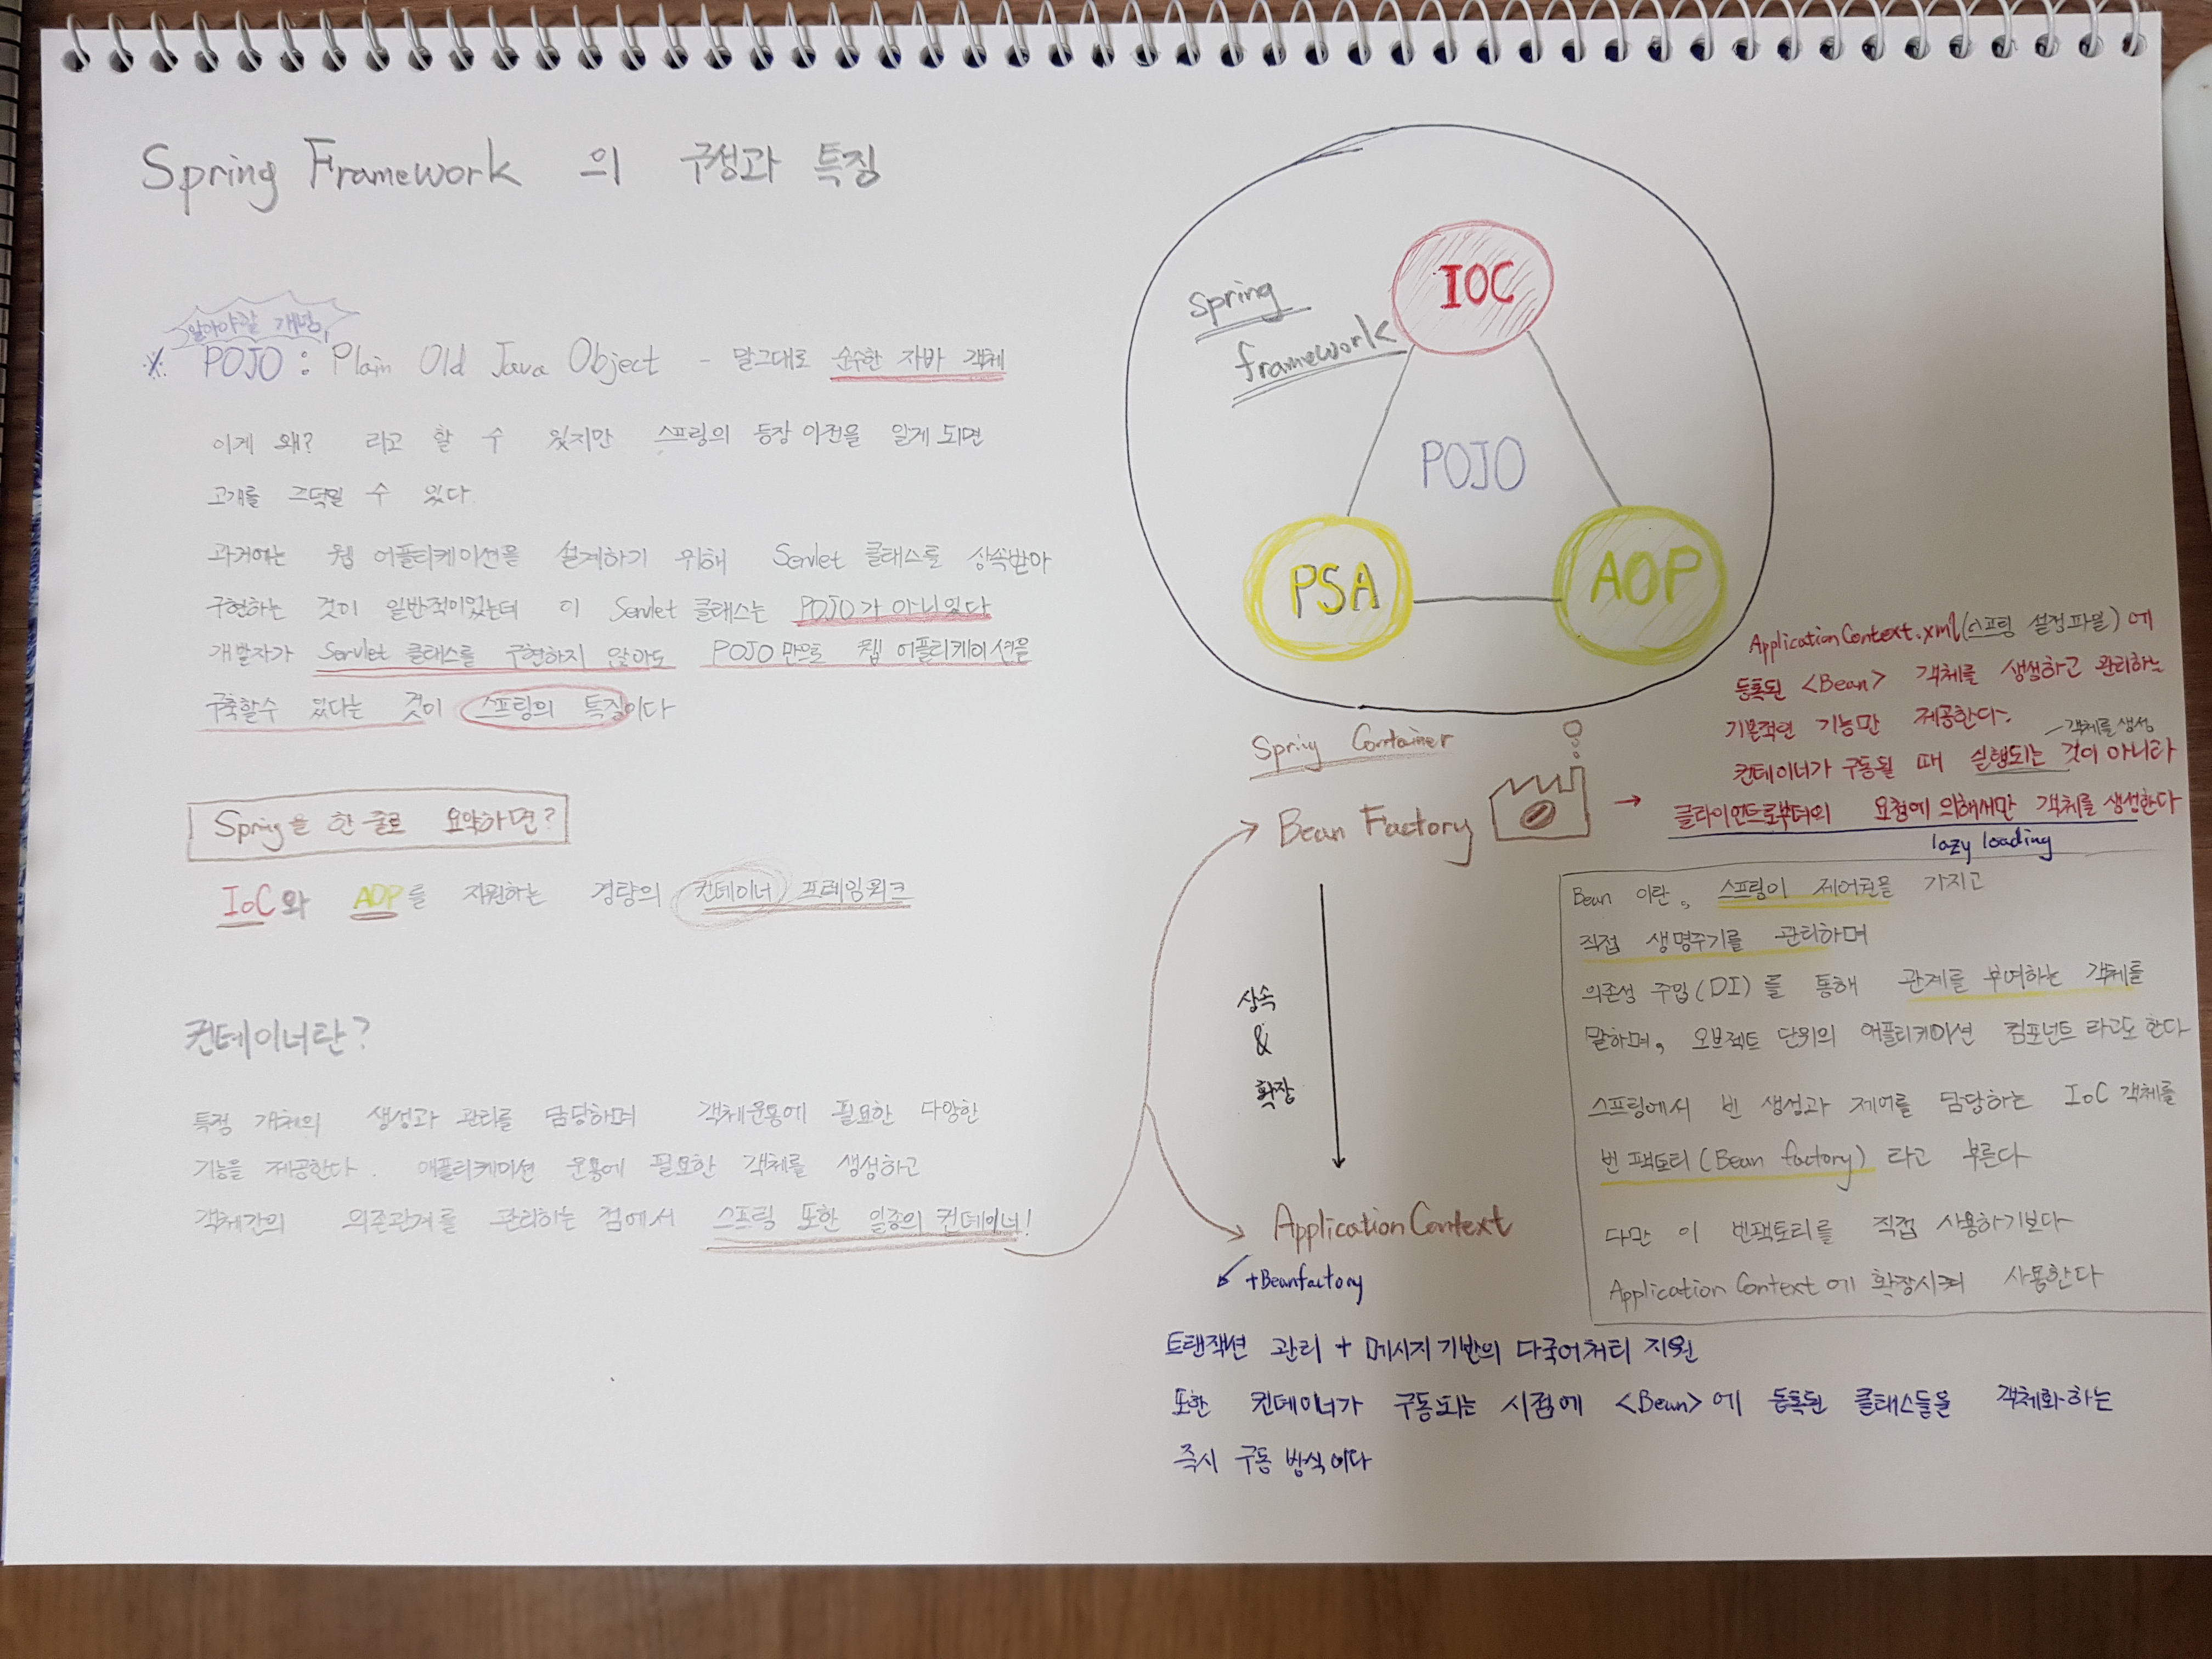 Spring Framework 의 구성과 특징
알아야할 개념!
※ POJO : Plain Old Java Object - 말 그대로 순수한 자바 객체
이게 왜? 라고 할 수 있지만 스프링의 등장 이전을 알게 되면
고개를 끄덕일 수 있다.
과거에는 웹 어플리케이션을 설계하기 위해 Servlet 클래스를 상속받아
구현하는 것이 일반적이었는데 이 Servlet 클래스는 POJO가 아니었다
개발자가 Servlet 클래스를 구현하지 않아도 POJO만으로 웹 어플리케이션을
구축할수 있다는 것이 스프링의 특징이다
Spring을 한 줄로 요약하면?
IoC와 AOP를 지원하는 경량의 컨테이너 프레임워크
컨테이너란?
특정 객체의 생성과 관리를 담당하며 객체운용에 필요한 다양한
기능을 제공한다. 애플리케이션 운용에 필요한 객체를 생성하고
객체간의 의존관계를 관리하는 점에서 스프링 또한 일종의 컨테이너!
Spring
framework
IOC
POJO
PSA
AOP
Spring Container
Bean Factory
→
ApplicationContext.xml(스프링 설정파일)에
등록된 <Bean> 객체를 생성하고 관리하는
기본적인 기능만 제공한다.
객체를 생성
컨테이너가 구동될 때 실행되는 것이 아니라
클라이언트로부터의 요청에 의해서만 객체를 생성한다
lazy loading
Bean 이란, 스프링이 제어권을 가지고
직접 생명주기를 관리하며
의존성 주입(DI)를 통해 관계를 부여하는 객체를
말하며, 오브젝트 단위의 어플리케이션 컴포넌트 라고도 한다
스프링에서 빈 생성과 제어를 담당하는 IoC 객체를
빈 팩토리(Bean factory) 라고 부른다
다만 이 빈팩토리를 직접 사용하기보다
Application Context 에 확장시켜 사용한다
상속
&
확장
ApplicationContext
+Beanfactory
트랜잭션 관리 + 메시지 기반의 다국어처리 지원
또한 컨테이너가 구동되는 시점에 <Bean>에 등록된 클래스들을 객체화하는
즉시 구동 방식이다